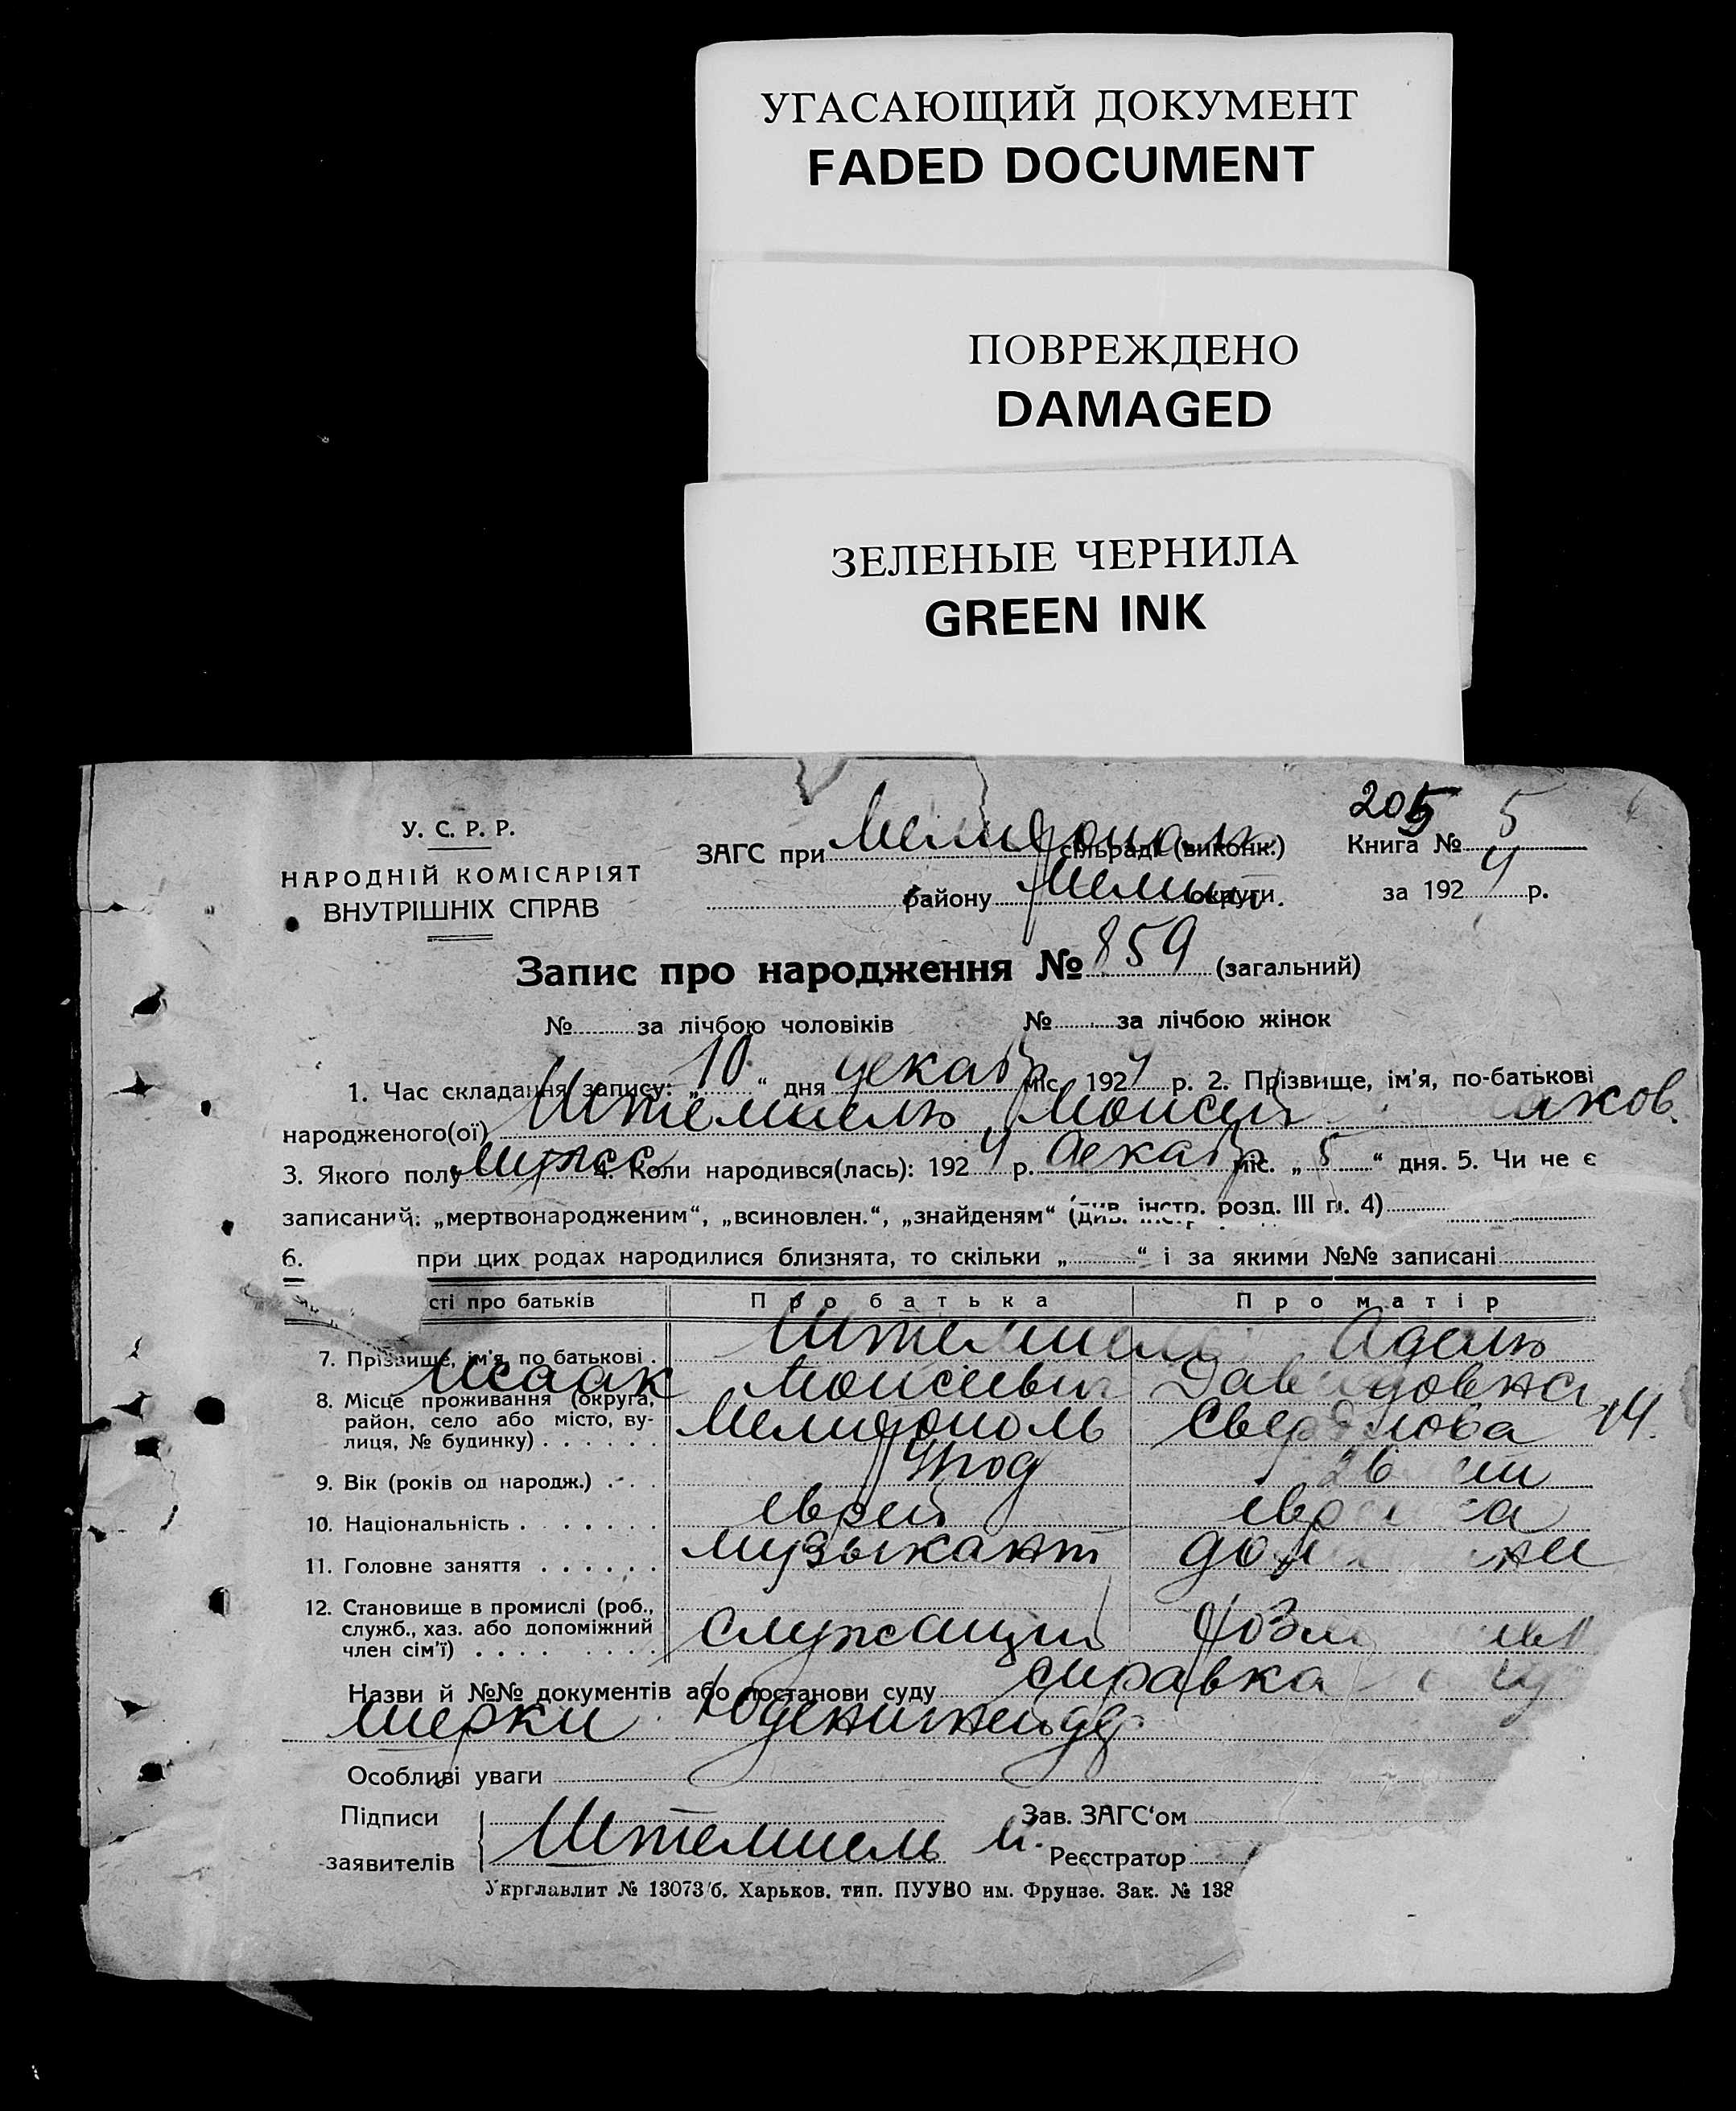 УГАСАЮЩИЙ ДОКУМЕНТ
FADED DOCUMENT
ПОВРЕЖДЕНО
DAMAGED
ЗЕЛЕНЫЕ ЧЕРНИЛА
GREEN INK
205 5
У. С. Р. Р.
НАРОДНІЙ КОМІСАРІЯТ
ВНУТРІШНІХ СПРАВ
ЗАГС при Мелитопол. сільраді (виконк.) Книга №
району Мелит. округи за 1924 р.
Запис про народження № 859 (загальний)
№ за лічбою чоловіків № за лічбою жінок
1. Час складання запису: „10“ дня декабр міс. 1924 р. 2. Прізвище, ім'я, по-батькові
народженого(ої) Штемпель Моисей аков.
3. Якого полу мужск 4. Коли народився(лась): 1924 р. декабр міс. „5“ дня. 5. Чи не є
записаний: „мертвонародженим“, „всиновлен.“, „знайденям“ (див. інстр. розд. III п. 4)
6. при цих родах народилися близнята, то скільки „ “ і за якими №№ записані
сті про батьків Про батька Про матір
7. Прізвище, ім'я, по батькові Штемпель Адель
Исаак Моисеевич Давидовна
8. Місце проживання (округа, район, село або місто, вулиця, № будинку) Мелитополь Свердлова 14.
9. Вік (років од народж.) год 26
10. Національність еврей евр а
11. Головне заняття музыкант дом
12. Становище в промислі (роб., служб., хаз. або допоміжний член сім'ї) служащий
Назви й №№ документів або постанови суду справка
Особливі уваги
Підписи Зав. ЗАГС'ом
заявителів Штемпель И. Реєстратор
Укрглавлит № 13073/б. Харьков. тип. ПУУВО им. Фрунзе. Зак. № 138